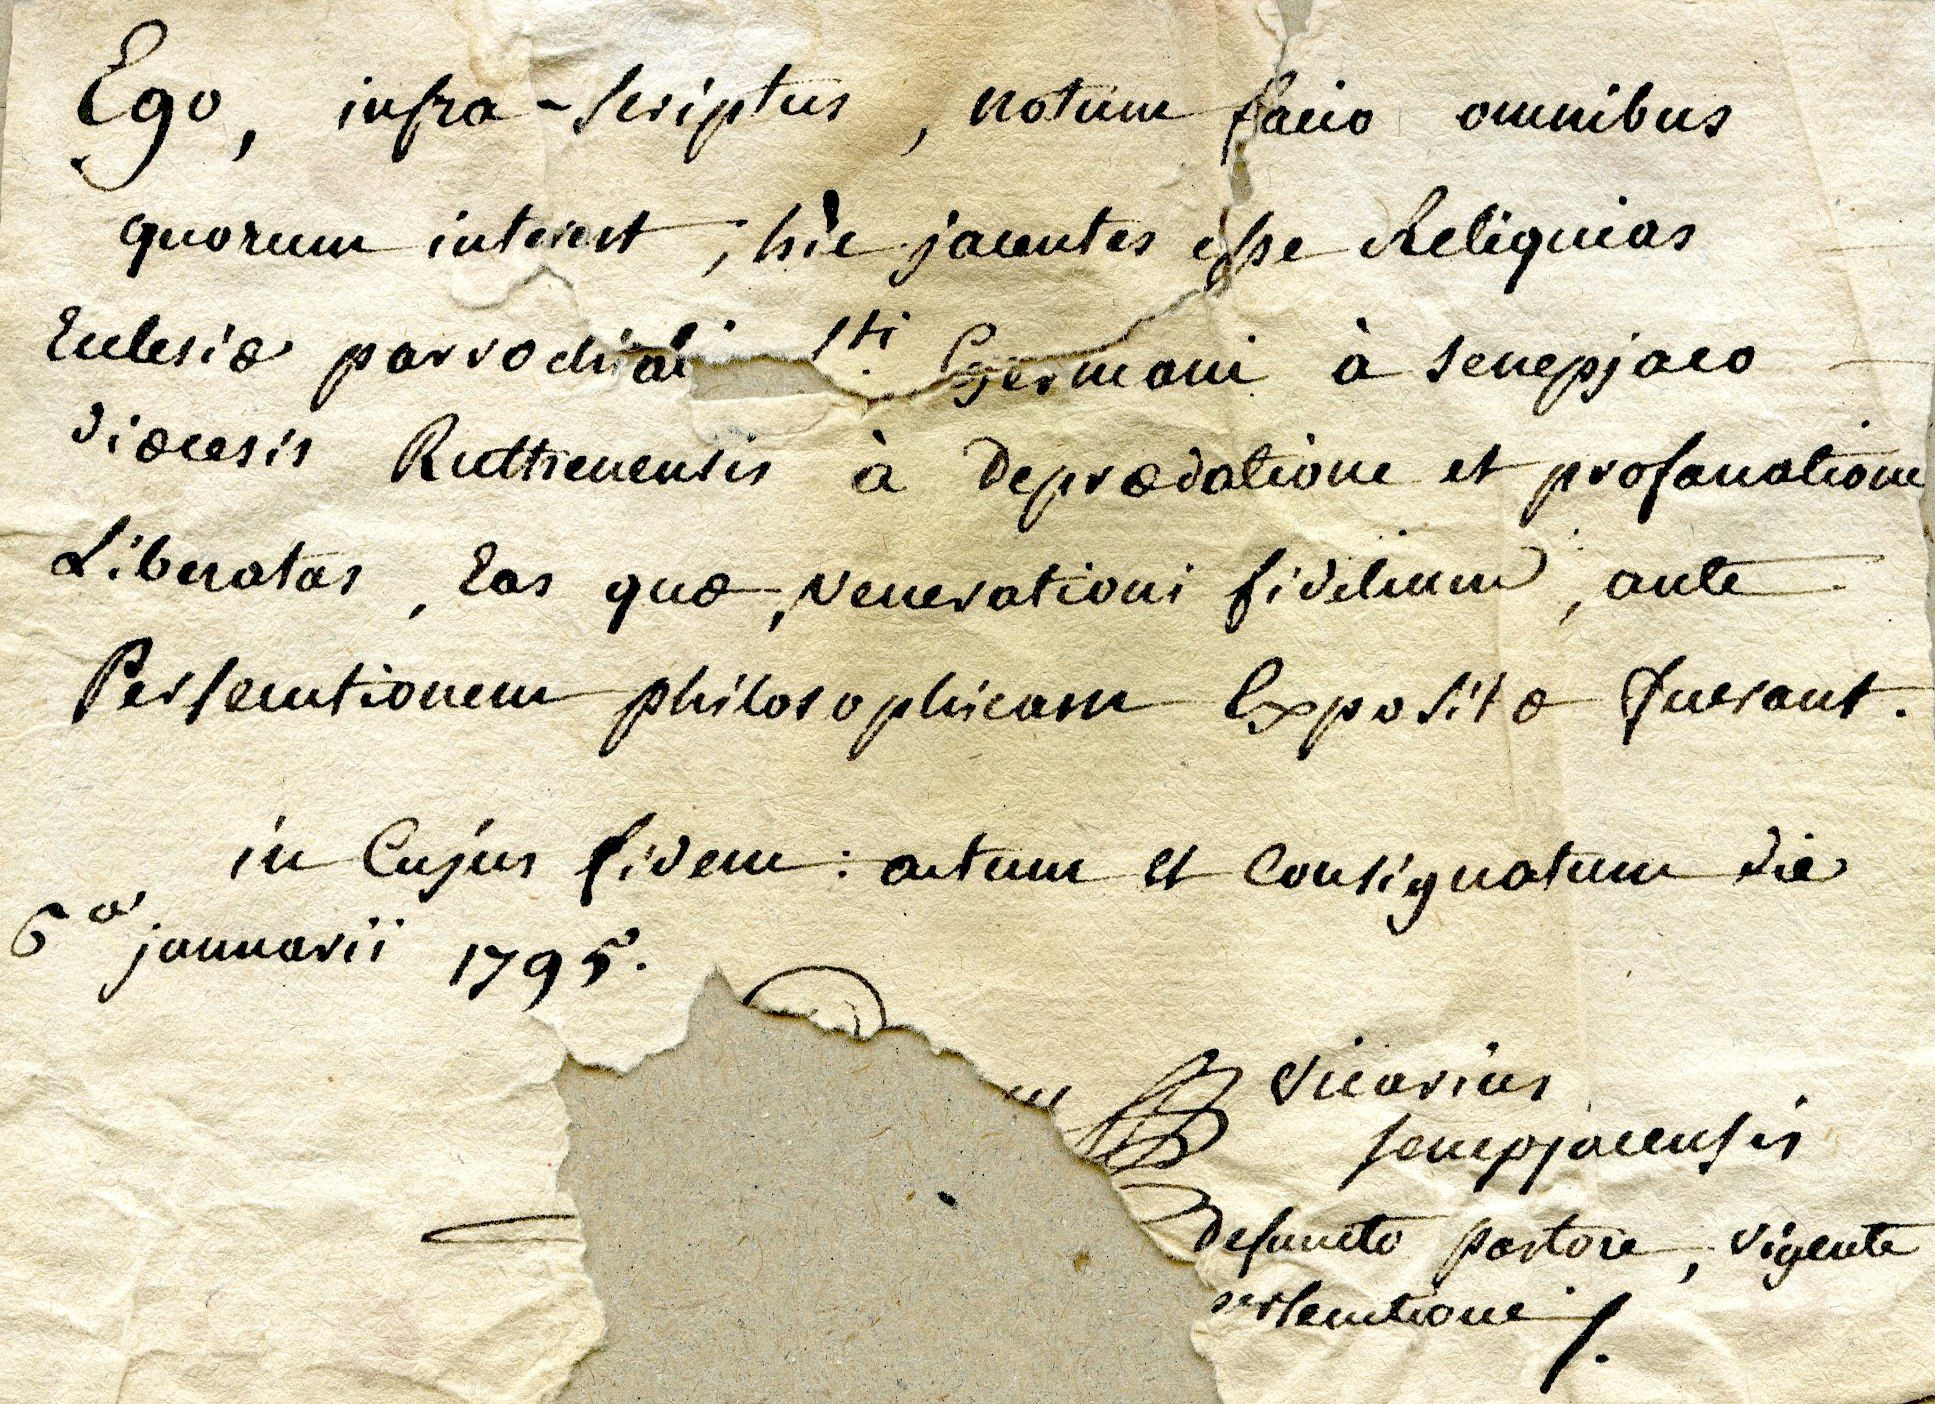 Ego, infra-scriptus, notum facio omnibus
quorum interest, hìc jacentes esse Reliquias
Eclesiæ parrochial Sti. Germani à senepjaco
diœcesis Ruthenensis à Deprædatione et profanatione
Liberatas, Eas quæ, venerationi fidelium, ante
Persecutionem philosophicam Expositæ fuerant.
in Cujus fidem: actum et Consignatum die
6a januarii 1795.
vicarius
senepjacensis
defuncto pastore, vigente
persecutione